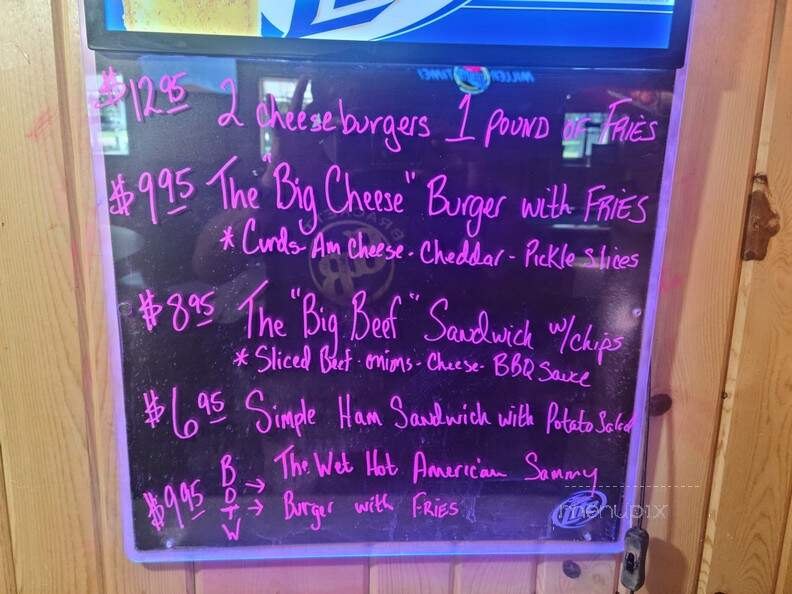 MILLER TIME!
$12.95 2 cheeseburgers 1 POUND OF FRIES
$9.95 The "Big Cheese" Burger with FRIES
* Curds - Am Cheese - Cheddar - Pickle slices
$8.95 The "Big Beef" Sandwich w/chips
* Sliced Beef - onions - Cheese - BBQ Sauce
$6.95 Simple Ham Sandwich with Potato Salad
$9.95 BOTW → The Wet Hot American Sammy
→ Burger with FRIES
menupix